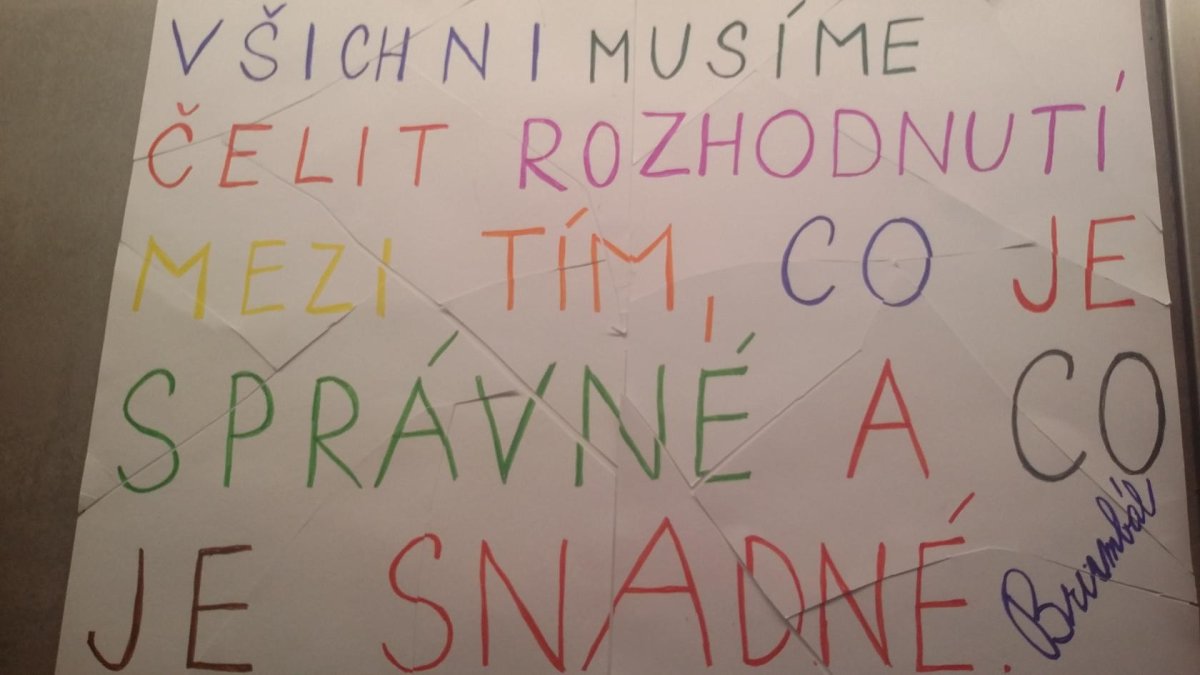 VŠICHNI MUSÍME
ČELIT ROZHODNUTÍ
MEZI TÍM, CO JE
SPRÁVNÉ A CO
JE SNADNÉ.
Brumbál